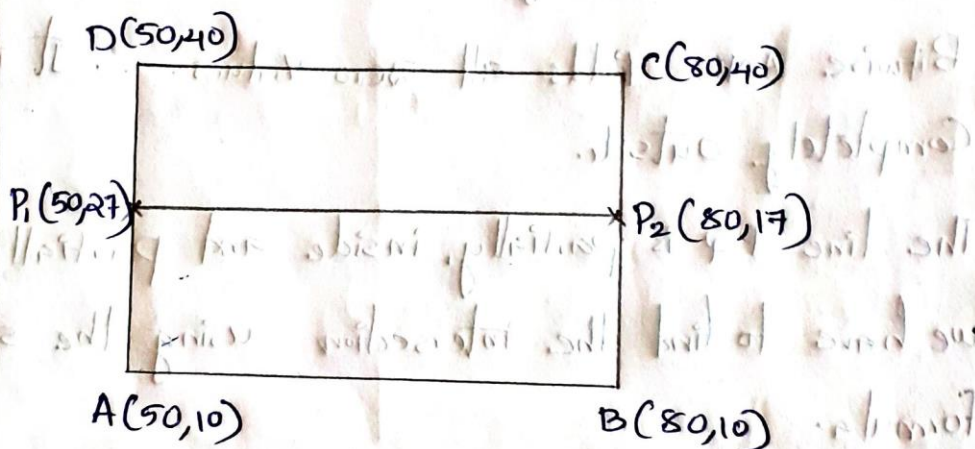 D(50,40)
C(80,40)
P₁(50,27)
P₂(80,17)
A(50,10)
B(80,10)